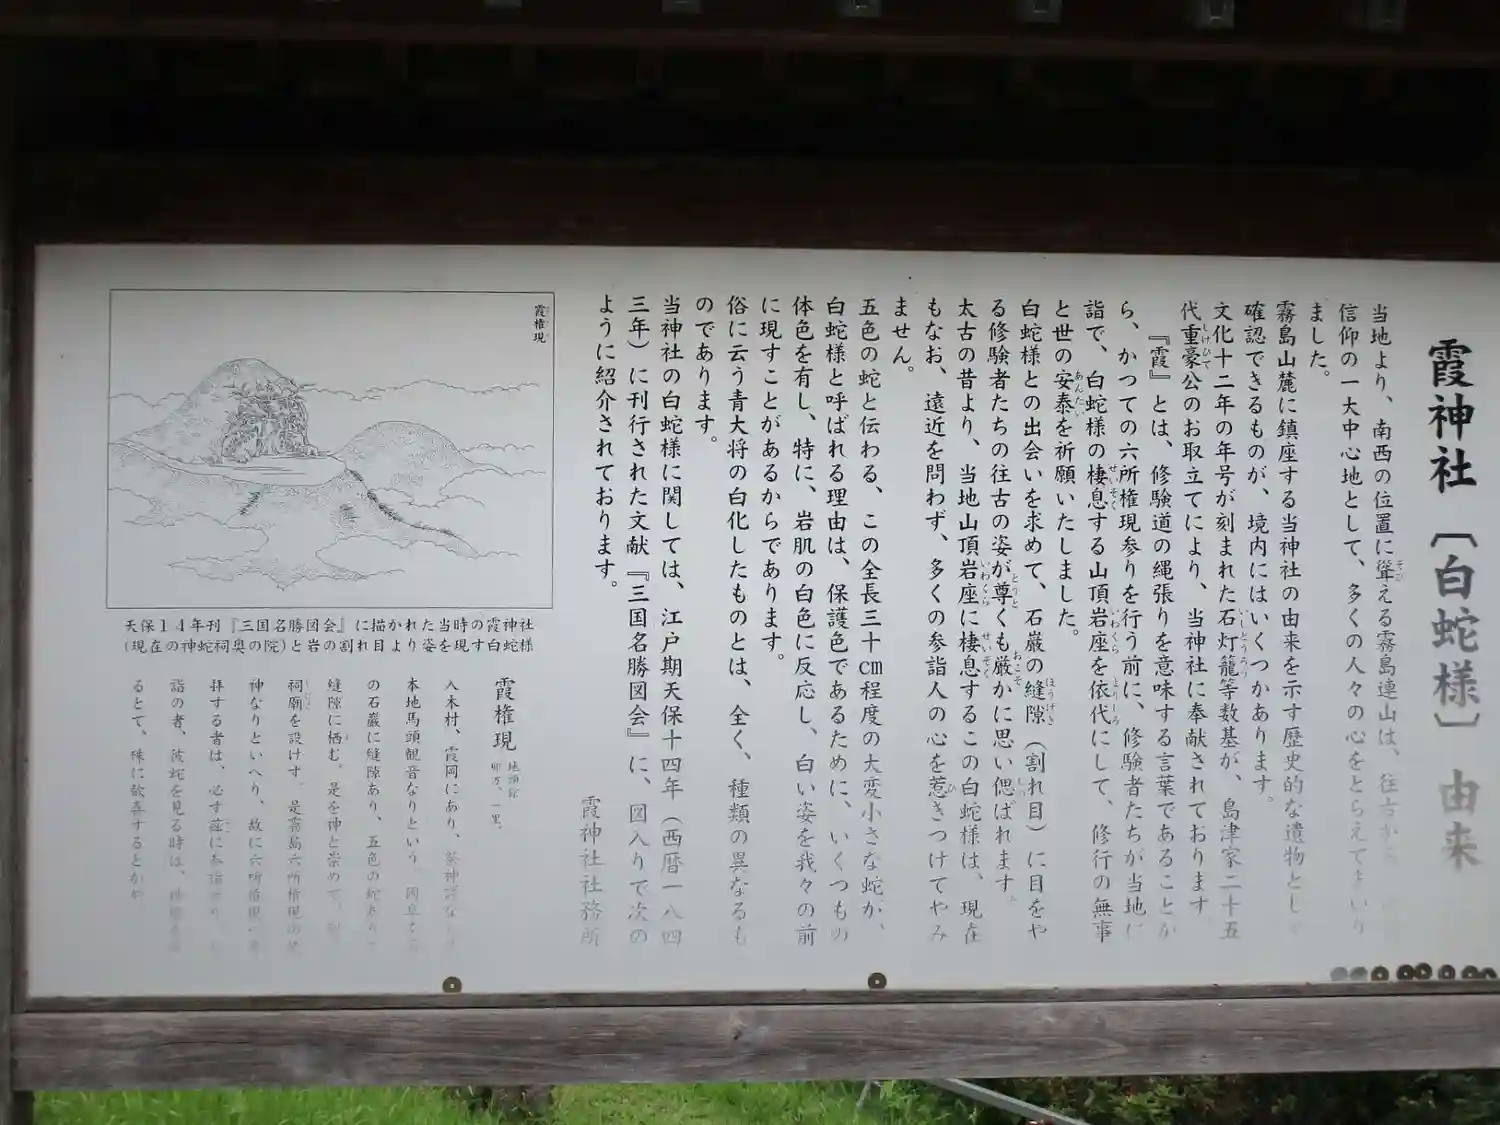 霞神社〔白蛇様〕由来
当地より、南西の位置に聳える霧島連山は、往古か
信仰の一大中心地として、多くの人々の心をとらえてまいり
ました。
霧島山麓に鎮座する当神社の由来を示す歴史的な遺物とし
確認できるものが、境内にはいくつかあります。
文化十二年の年号が刻まれた石灯籠等数基が、島津家二十五
代重豪公のお取立てにより、当神社に奉献されております
『霞』とは、修験道の縄張りを意味する言葉であることか
ら、かつての六所権現参りを行う前に、修験者たちが当地に
詣で、白蛇様の棲息する山頂岩座を依代にして、修行の無事
と世の安泰を祈願いたしました。
白蛇様との出会いを求めて、石巌の縫隙(割れ目)に目をや
る修験者たちの往古の姿が尊くも厳かに思い偲ばれます。
太古の昔より、当地山頂岩座に棲息するこの白蛇様は、現在
もなお、遠近を問わず、多くの参詣人の心を惹きつけてやみ
ません。
五色の蛇と伝わる、この全長三十cm程度の大変小さな蛇が、
白蛇様と呼ばれる理由は、保護色であるために、いくつもの
体色を有し、特に、岩肌の白色に反応し、白い姿を我々の前
に現すことがあるからであります。
俗に云う青大将の白化したものとは、全く、種類の異なるも
のであります。
当神社の白蛇様に関しては、江戸期天保十四年(西暦一八四
三年)に刊行された文献『三国名勝図会』に、図入りで次の
ように紹介されております。
霞神社社務所
霞権現
天保14年刊『三国名勝図会』に描かれた当時の霞神社
(現在の神蛇祠奥の院)と岩の割れ目より姿を現す白蛇様
霞権現
入木村、霞岡にあり、祭神詳な
本地馬頭観音なりという。岡阜
の石巌に縫隙あり、五色の蛇
縫隙に栖む。是を神と崇めて、
祠廟を設けす。是霧島六所権現の
神なりといへり、故に六所権現
拝する者は、必す茲に参詣
詣の者、彼蛇を見る時は、
るとて、殊に歓喜するとかや